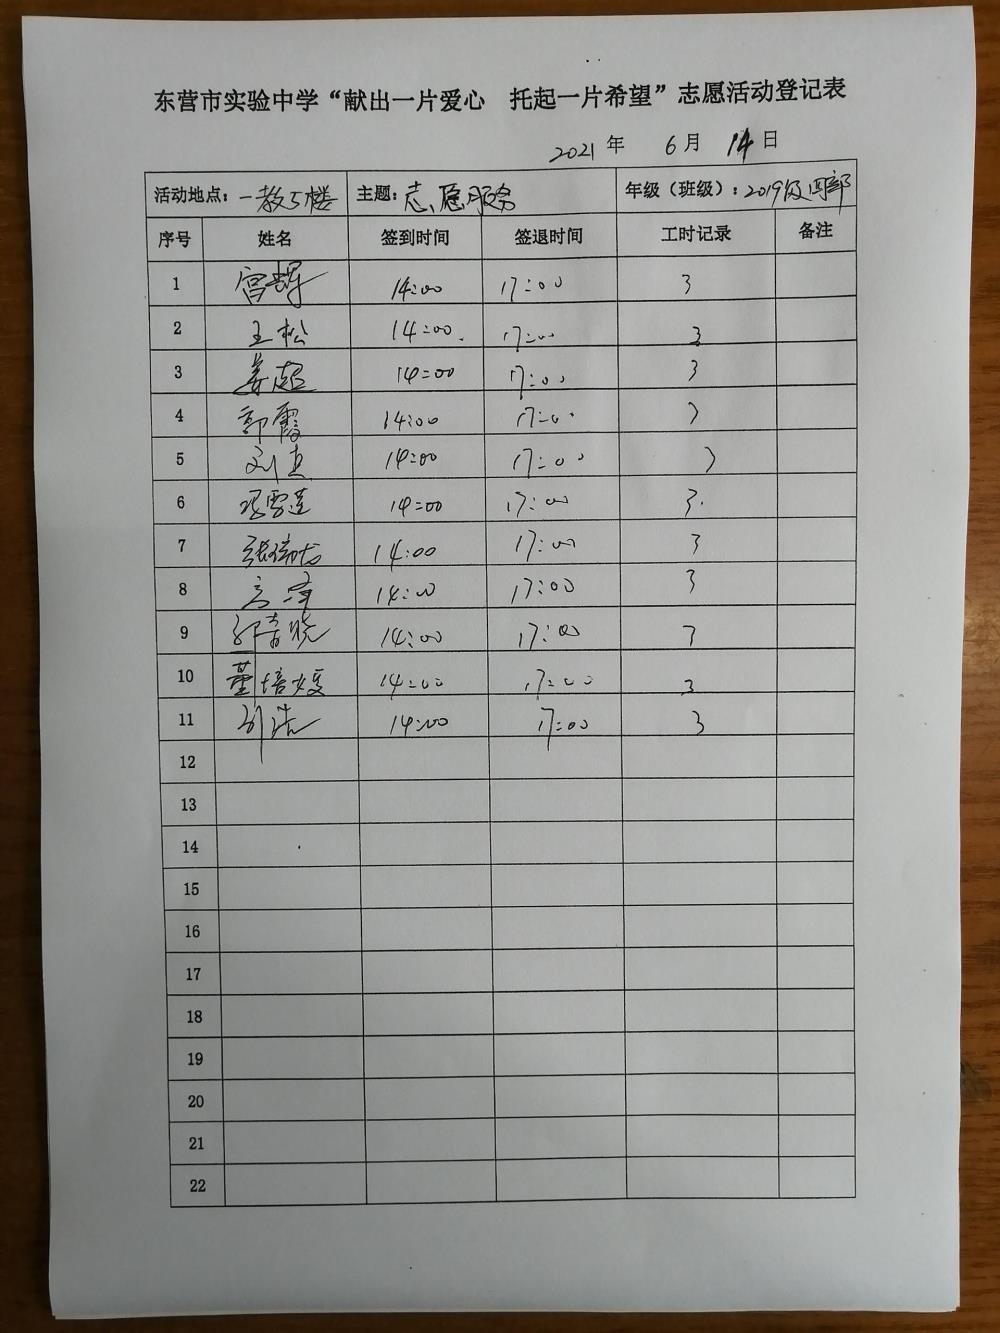 东营市实验中学“献出一片爱心 托起一片希望”志愿活动登记表
2021 年 6 月 14 日
活动地点：一教5楼 主题：志愿服务 年级（班级）：2019级四部
序号 姓名 签到时间 签退时间 工时记录 备注
1 14:00 17:00 3
2 王松 14:00 17:00 3
3 姜超 14:00 17:00 3
4 郭霞 14:00 17:00 3
5 刘杰 14:00 17:00 3
6 14:00 17:00 3
7 14:00 17:00 3
8 14:00 17:00 3
9 14:00 17:00 3
10 董培媛 14:00 17:00 3
11 14:00 17:00 3
12
13
14
15
16
17
18
19
20
21
22